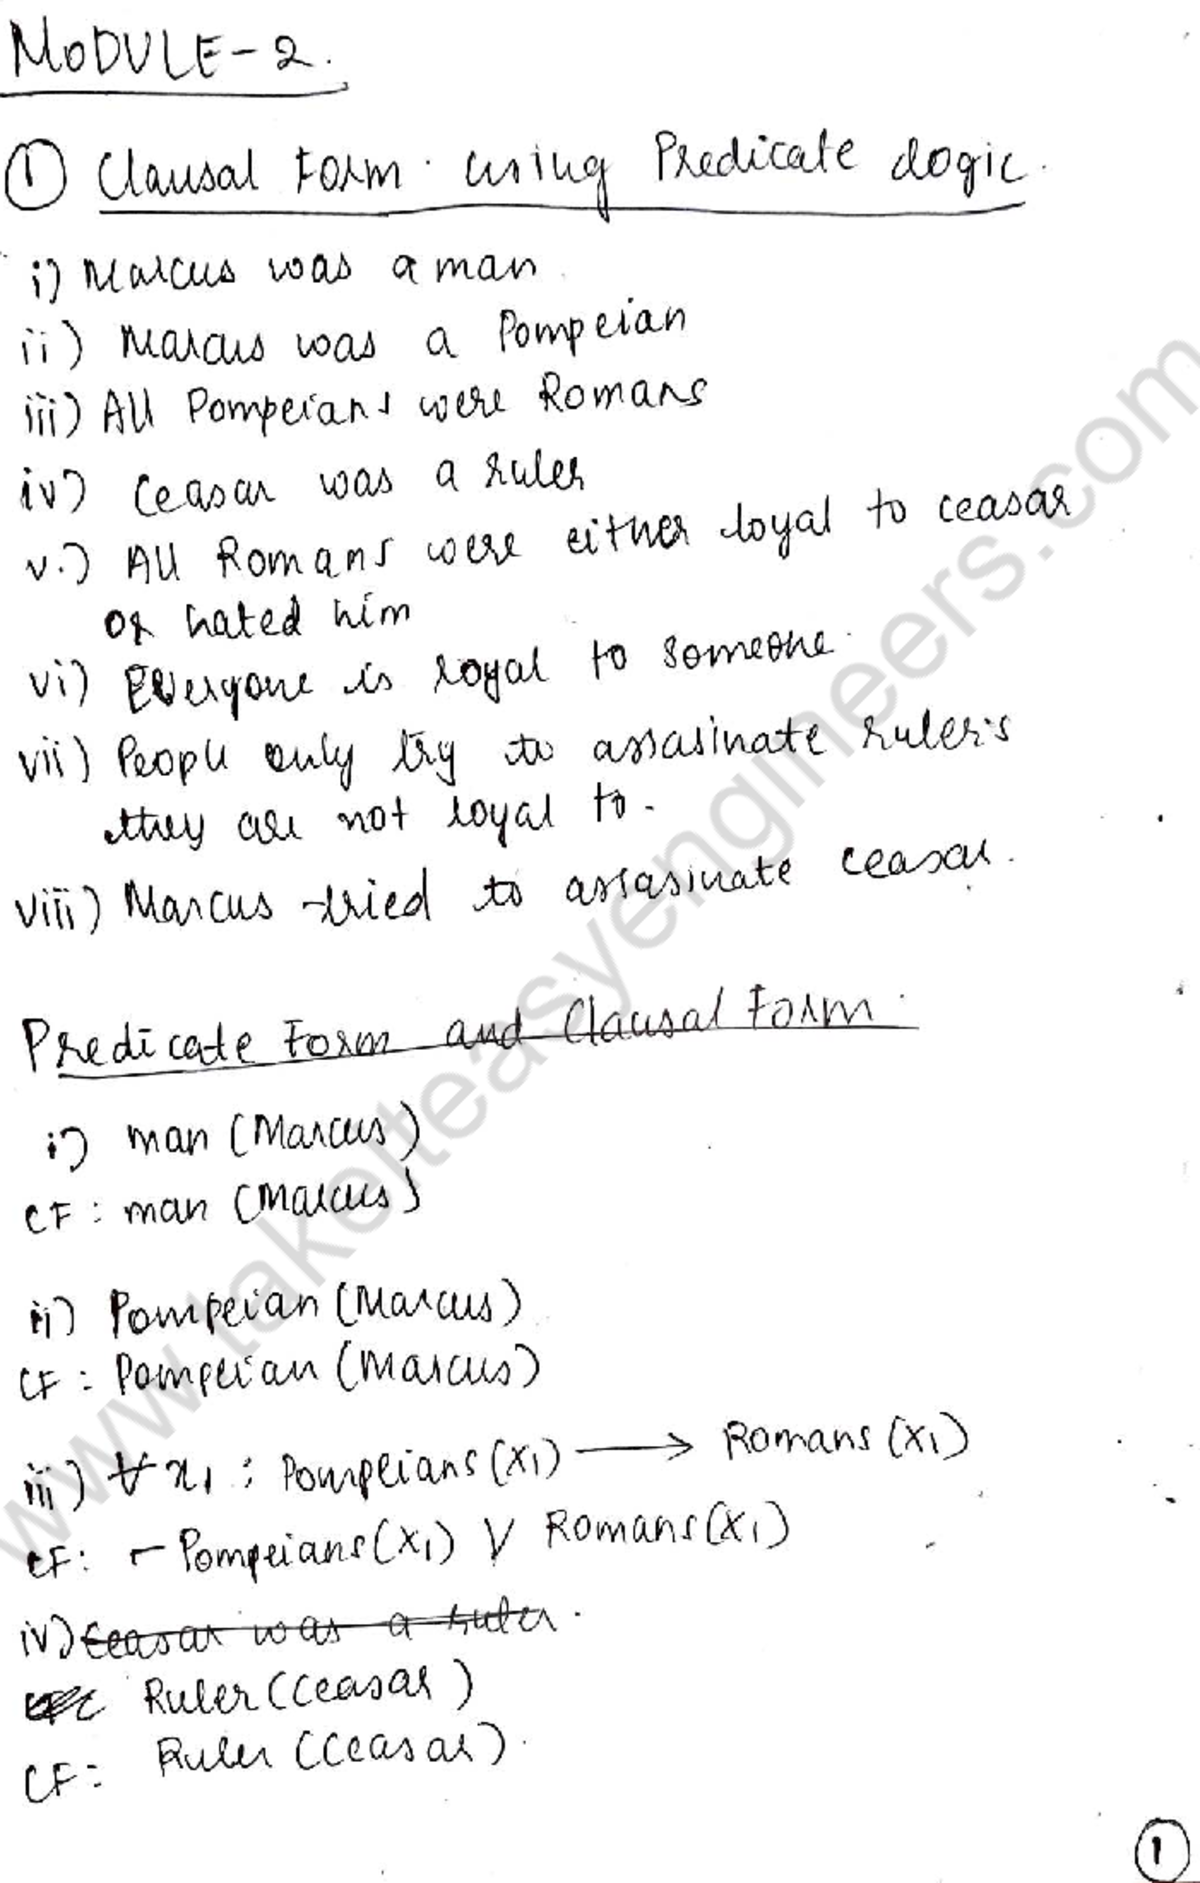 MODULE-2.
① Clausal Form using Predicate Logic.
i) Marcus was a man
ii) Marcus was a Pompeian
iii) All Pompeians were Romans
iv) Ceasar was a ruler
v.) All Romans were either loyal to ceasar
or hated him
vi) Everyone is loyal to someone.
vii) People only try to assasinate rulers
they are not loyal to.
viii) Marcus tried to assasinate ceasar.
Predicate Form and Clausal Form.
i) man (Marcus)
CF: man (Marcus)
ii) Pompeian (Marcus)
CF: Pompeian (Marcus)
iii) ∀x₁ : Pompeians (x₁) ⟶ Romans (x₁)
CF: ¬Pompeians (x₁) V Romans (x₁)
iv) Ceasar was a ruler.
Ruler (Ceasar)
CF: Ruler (Ceasar).
1
www.takeiteasyengineers.com